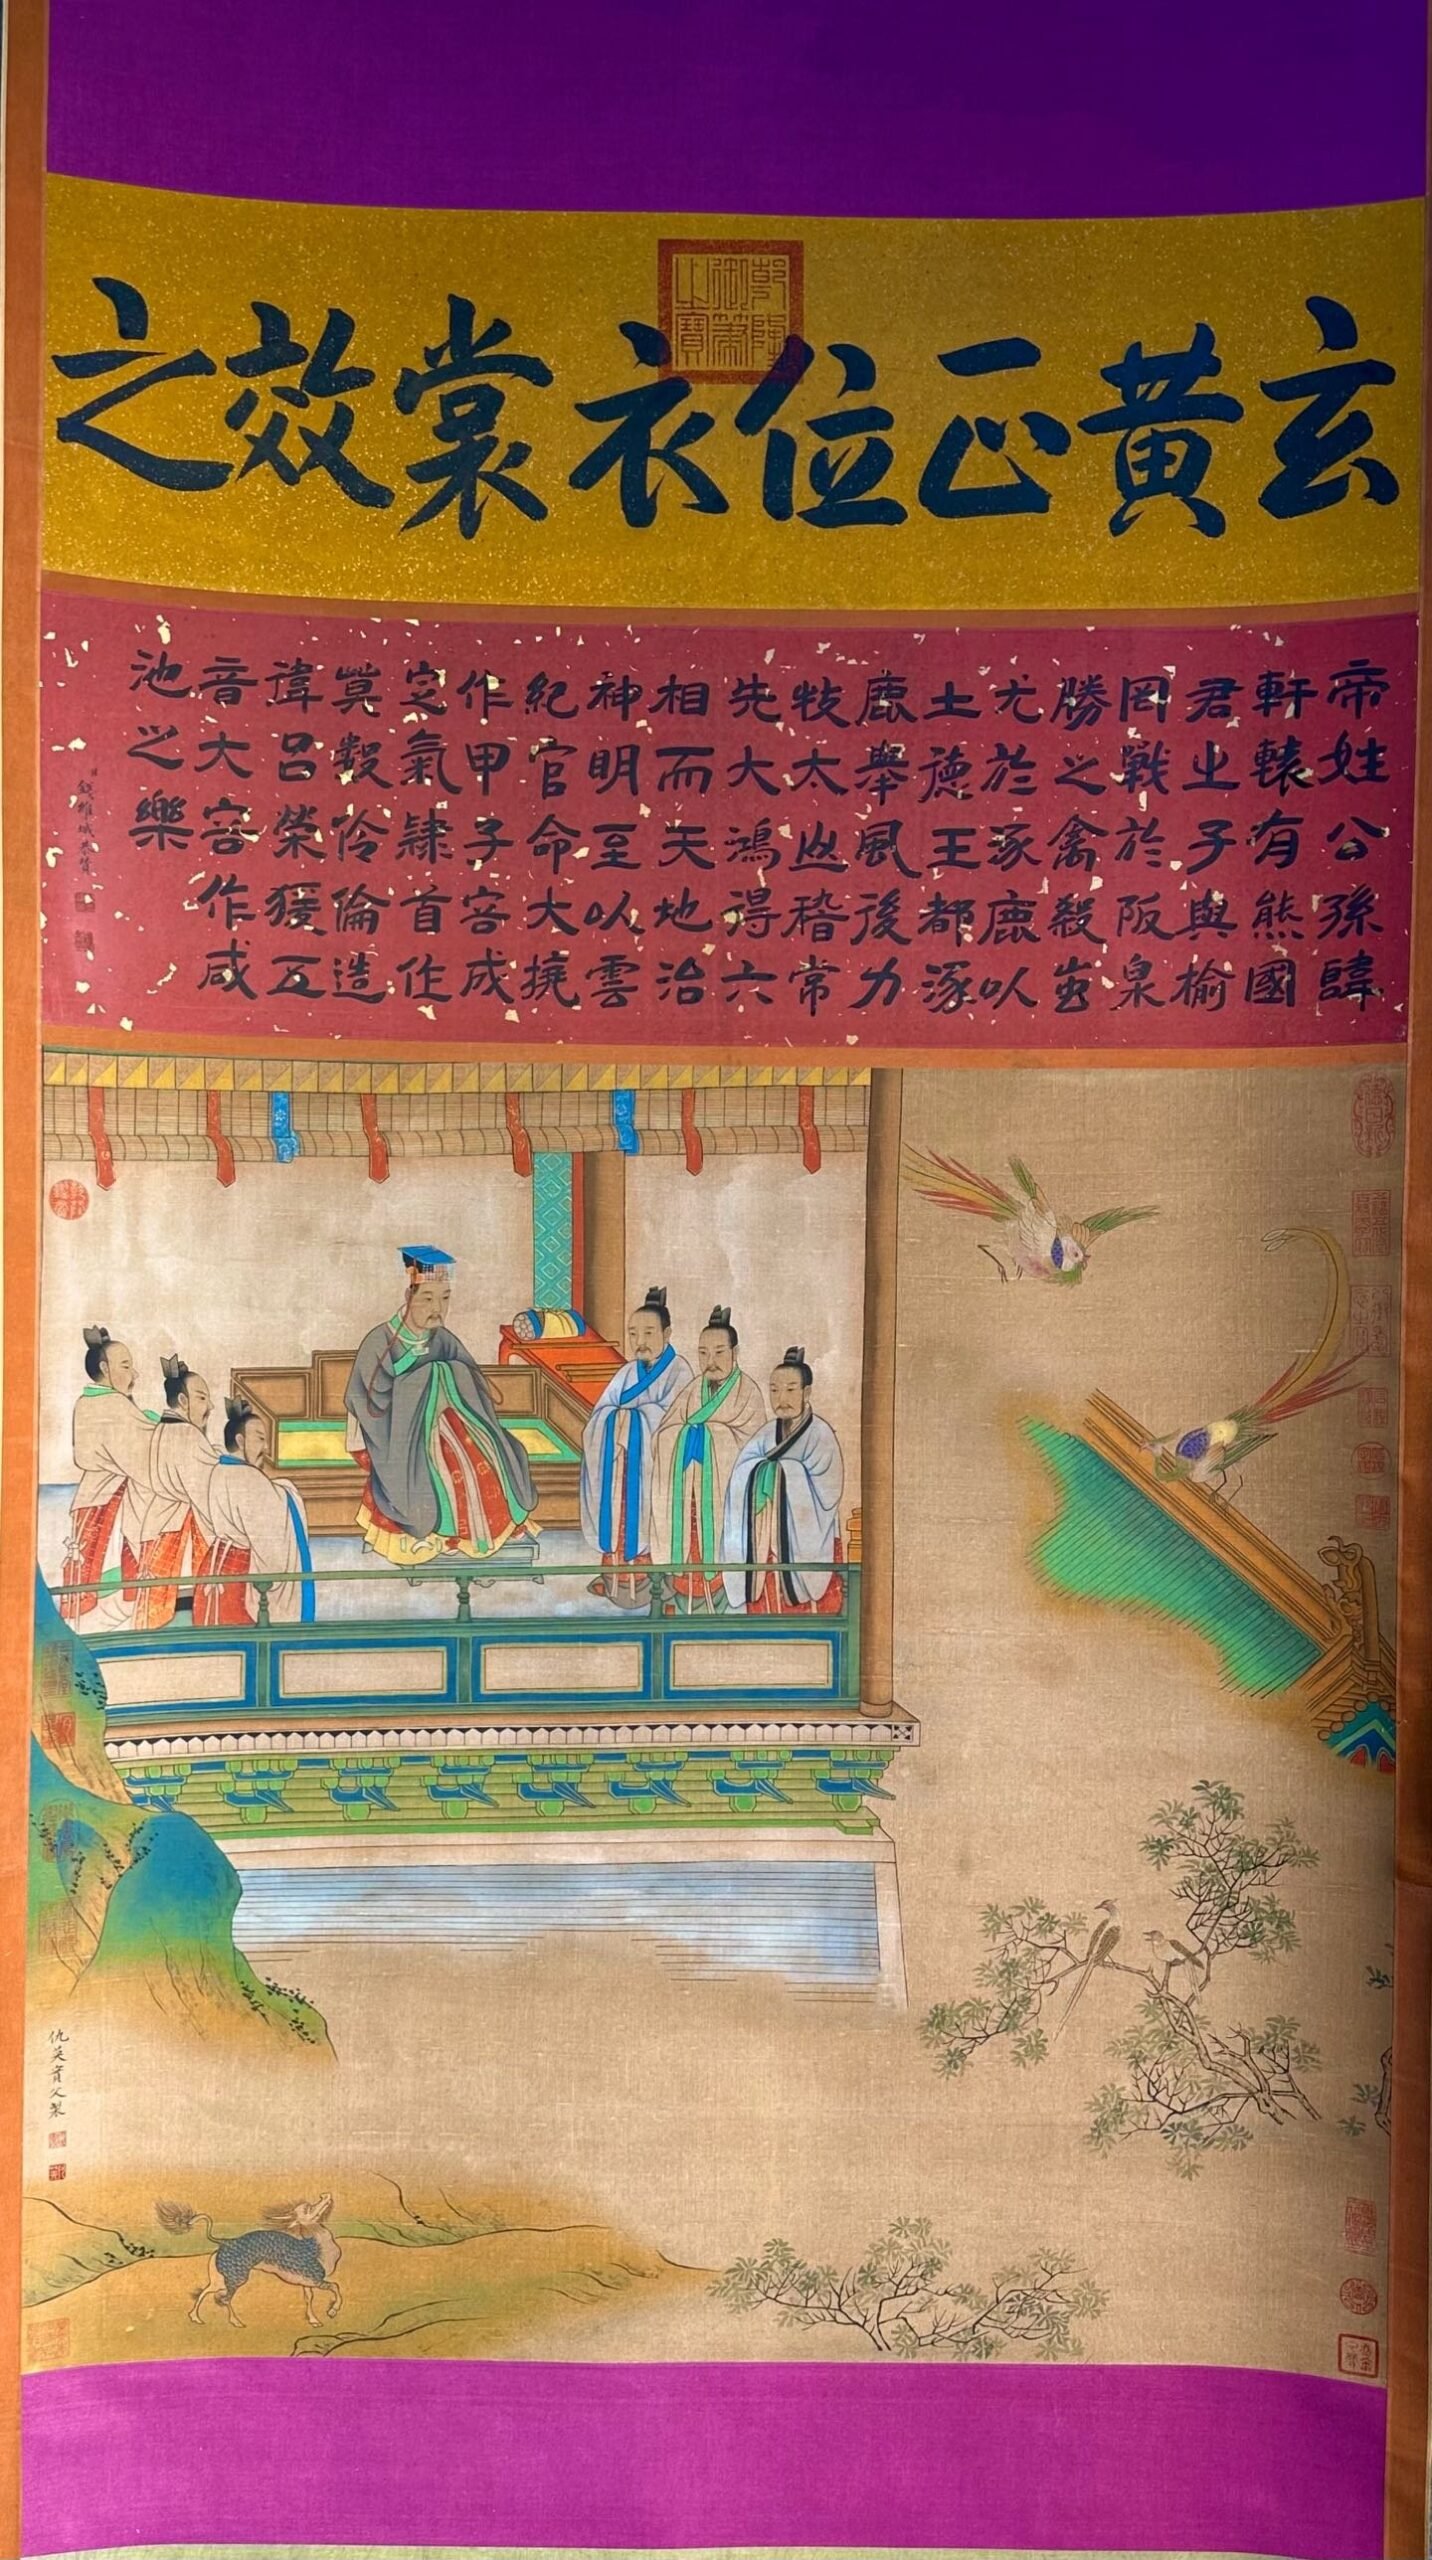 玄黃正位衣裳效之
乾隆御筆之寶
帝姓公孫諱
軒轅有熊國
君之子與榆
罔戰於阪泉
勝之禽殺蚩
尤於涿鹿以
土德王都涿
鹿舉風後力
牧太山稽常
先大鴻得六
相而天地治
神明至以雲
紀官命大撓
作甲子容成
定氣隸首作
算數伶倫造
律呂榮猨五
音大容作咸
池之樂
臣錢維城恭贊
仇英實父製